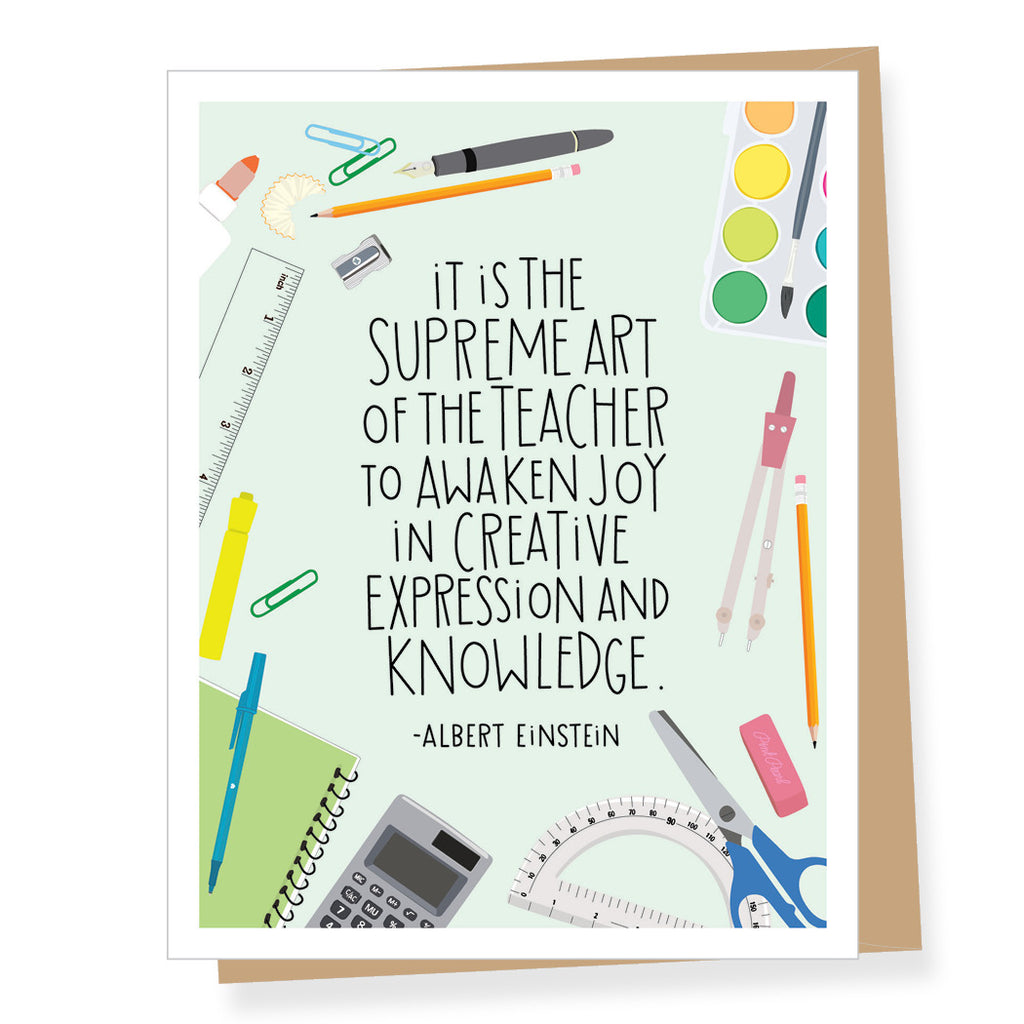 iT iS THE
SUPREME ART
OF THE TEACHER
TO AWAKEN JOY
iN CREATiVE
EXPRESSiON AND
KNOWLEDGE.
-ALBERT EiNSTEiN
inch
1
2
3
4
Pink Pearl
0 10 20 30 40 50 60 70 80 90 100 110 120
150
1 2
MRC M- M+ √
C/AC MU
7 8 %
4